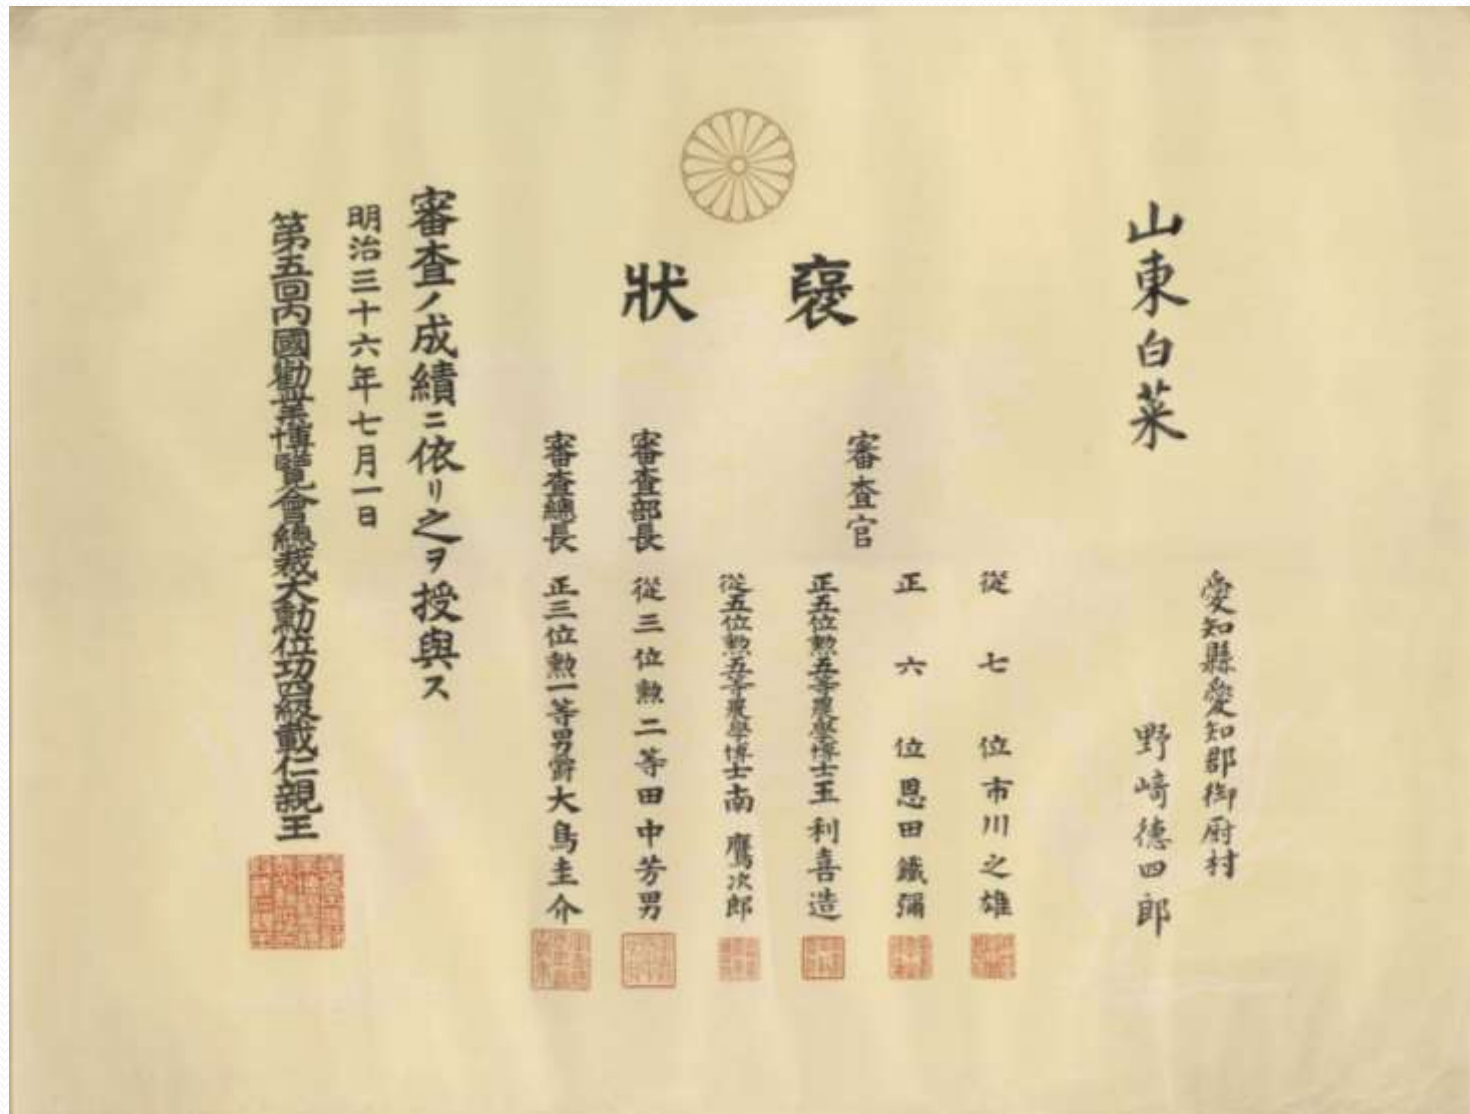 褒狀
山東白菜
愛知縣愛知郡御廚村
野﨑德四郎
審査官
從七位市川之雄
正六位恩田鐵彌
正五位勲五等農學博士玉利喜造
從五位勲五等農學博士南鷹次郎
審査部長 從三位勲二等田中芳男
審査總長 正三位勲一等男爵大鳥圭介
審査ノ成績ニ依リ之ヲ授與ス
明治三十六年七月一日
第五回内國勸業博覽會總裁大勳位功四級載仁親王